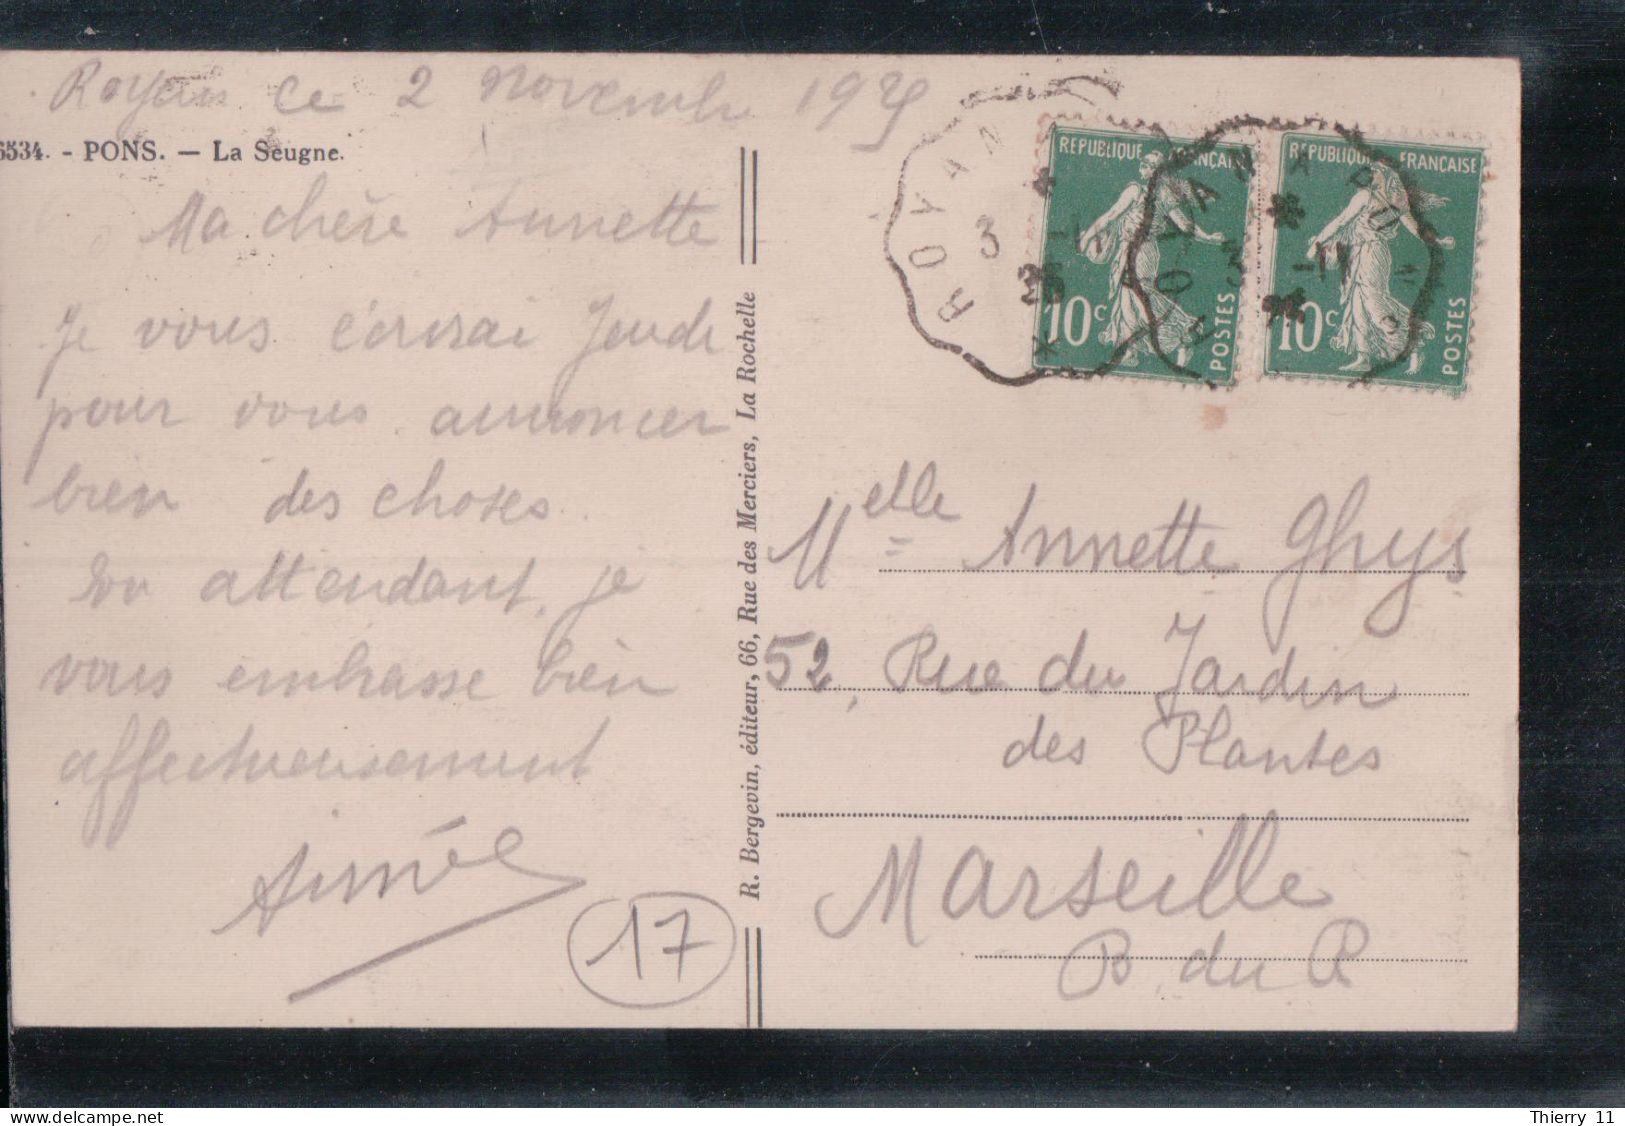 Royan ce 2 Novembre 1925
6534. - PONS. — La Seugne.
Ma chère Annette
Je vous écrirai Jeudi
pour vous annoncer
bien des choses.
En attendant, je
vous embrasse bien
affectueusement
Aimée
17
R. Bergevin, éditeur, 66, Rue des Merciers, La Rochelle
ROYAN
3 -11
25
REPUBLIQUE FRANÇAISE
10c POSTES
ROYAN A PONS
3 -11
REPUBLIQUE FRANÇAISE
10c POSTES
Melle Annette Ghys
52, Rue du Jardin
des Plantes
Marseille
B. du R
delcampe.net
Thierry 11